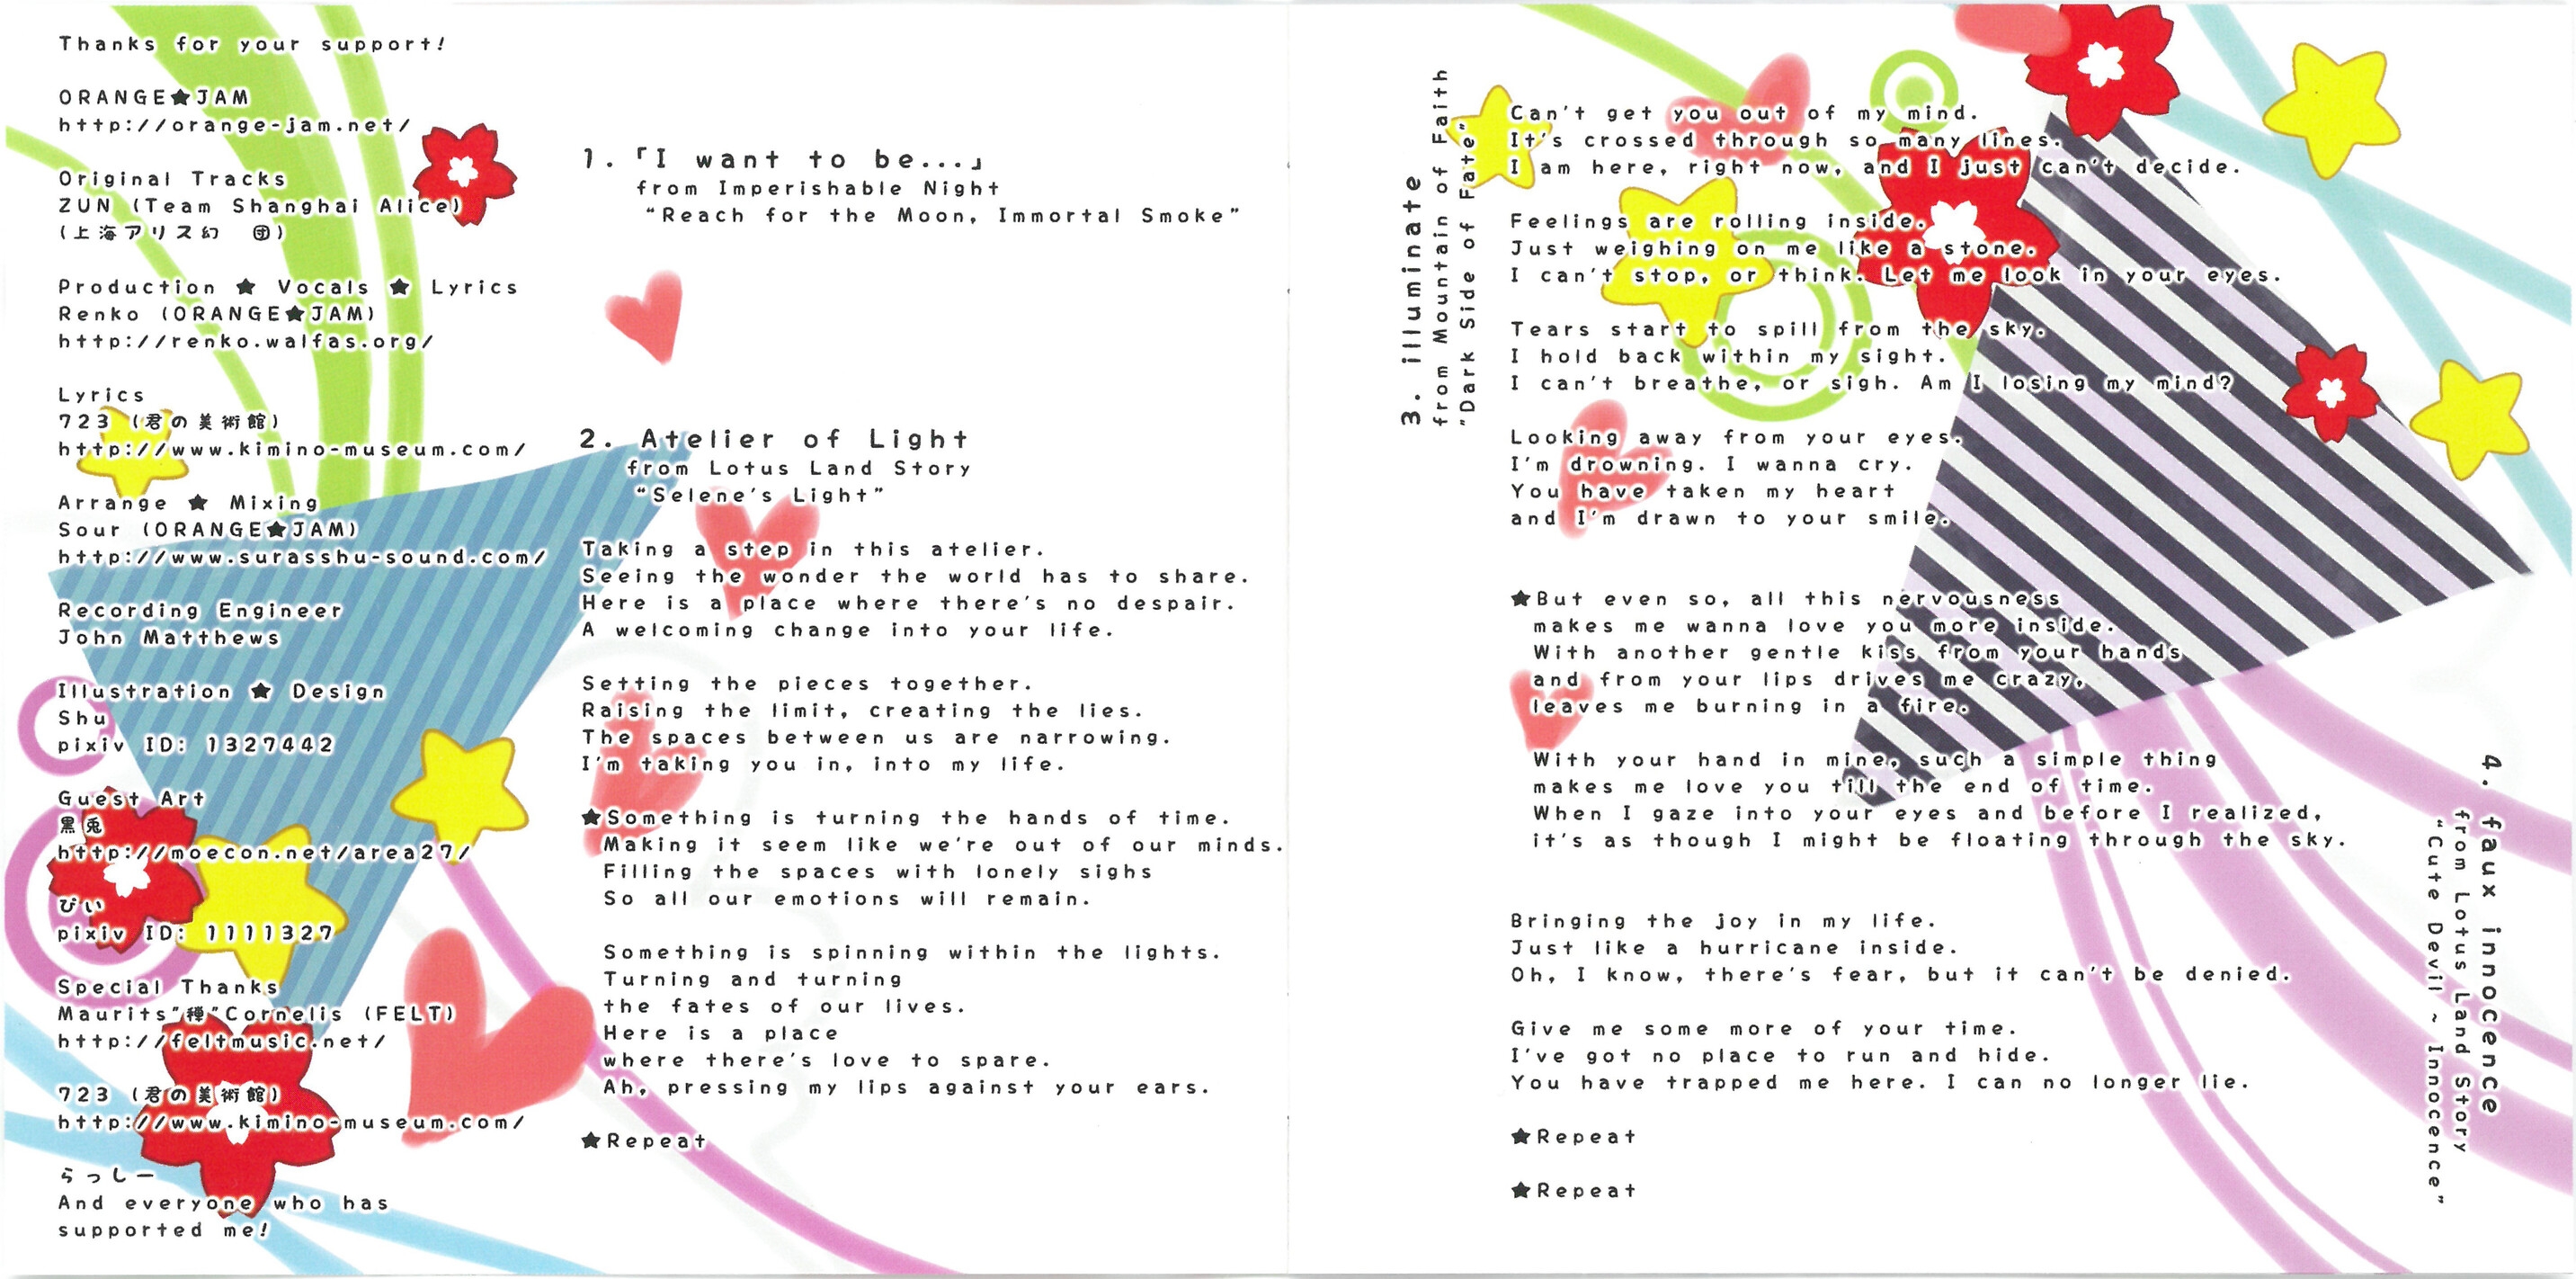 Thanks for your support!
ORANGE★JAM
http://orange-jam.net/
Original Tracks
ZUN (Team Shanghai Alice)
(上海アリス幻 団)
Production ★ Vocals ★ Lyrics
Renko (ORANGE★JAM)
http://renko.walfas.org/
Lyrics
723 (君の美術館)
http://www.kimino-museum.com/
Arrange ★ Mixing
Sour (ORANGE★JAM)
http://www.surasshu-sound.com/
Recording Engineer
John Matthews
Illustration ★ Design
Shu
pixiv ID: 1327442
Guest Art
黒兎
http://moecon.net/area27/
ぴい
pixiv ID: 1111327
Special Thanks
Maurits"禅"Cornelis (FELT)
http://feltmusic.net/
723 (君の美術館)
http://www.kimino-museum.com/
らっしー
And everyone who has
supported me!
1. 「I want to be...」
from Imperishable Night
"Reach for the Moon, Immortal Smoke"
2. Atelier of Light
from Lotus Land Story
"Selene's Light"
Taking a step in this atelier.
Seeing the wonder the world has to share.
Here is a place where there's no despair.
A welcoming change into your life.
Setting the pieces together.
Raising the limit, creating the lies.
The spaces between us are narrowing.
I'm taking you in, into my life.
★Something is turning the hands of time.
Making it seem like we're out of our minds.
Filling the spaces with lonely sighs
So all our emotions will remain.
Something is spinning within the lights.
Turning and turning
the fates of our lives.
Here is a place
where there's love to spare.
Ah, pressing my lips against your ears.
★Repeat
3. illuminate
from Mountain of Faith
"Dark Side of Fate"
Can't get you out of my mind.
It's crossed through so many lines.
I am here, right now, and I just can't decide.
Feelings are rolling inside.
Just weighing on me like a stone.
I can't stop, or think. Let me look in your eyes.
Tears start to spill from the sky.
I hold back within my sight.
I can't breathe, or sigh. Am I losing my mind?
Looking away from your eyes.
I'm drowning. I wanna cry.
You have taken my heart
and I'm drawn to your smile.
★But even so, all this nervousness
makes me wanna love you more inside.
With another gentle kiss from your hands
and from your lips drives me crazy,
leaves me burning in a fire.
With your hand in mine, such a simple thing
makes me love you till the end of time.
When I gaze into your eyes and before I realized,
it's as though I might be floating through the sky.
Bringing the joy in my life.
Just like a hurricane inside.
Oh, I know, there's fear, but it can't be denied.
Give me some more of your time.
I've got no place to run and hide.
You have trapped me here. I can no longer lie.
★Repeat
★Repeat
4. faux innocence
from Lotus Land Story
"Cute Devil ~ Innocence"